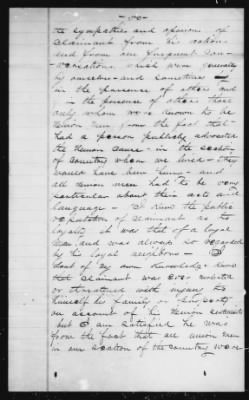 the sympathies and opinions of
claimant from his actions
and from our frequent con-
versations, which were generally
by ourselves and sometimes
in the presence of others and
in the presence of others those
only whom were known to be
Union men from the fact that
had a person publicly advocated
the Union cause in the section
of country where we lived they
would have been hung and
all Union men had to be very
particular about their acts and
language I knew the public
reputation of claimant as to
loyalty it was that of a loyal
man and was always so regarded
by his loyal neighbors I
dont of my own knowledge know
that claimant was ever molested
or threatened with injury to
himself his family or property
on account of his Union sentiments
but I am satisfied he was
from the fact that all union men
in our section of the country were